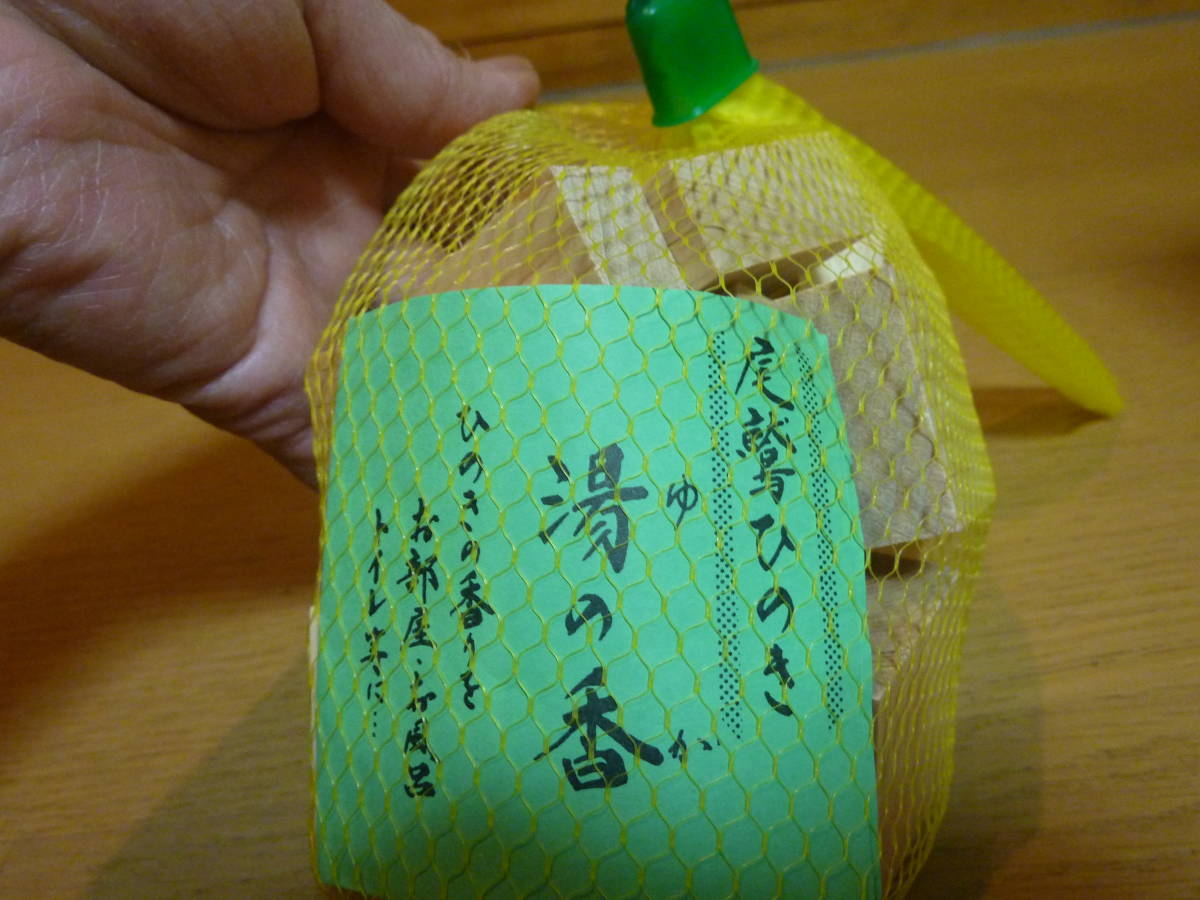 尾鷲ひのき
湯の香
ゆ
か
ひのきの香りを
お部屋・お風呂
トイレ等に…